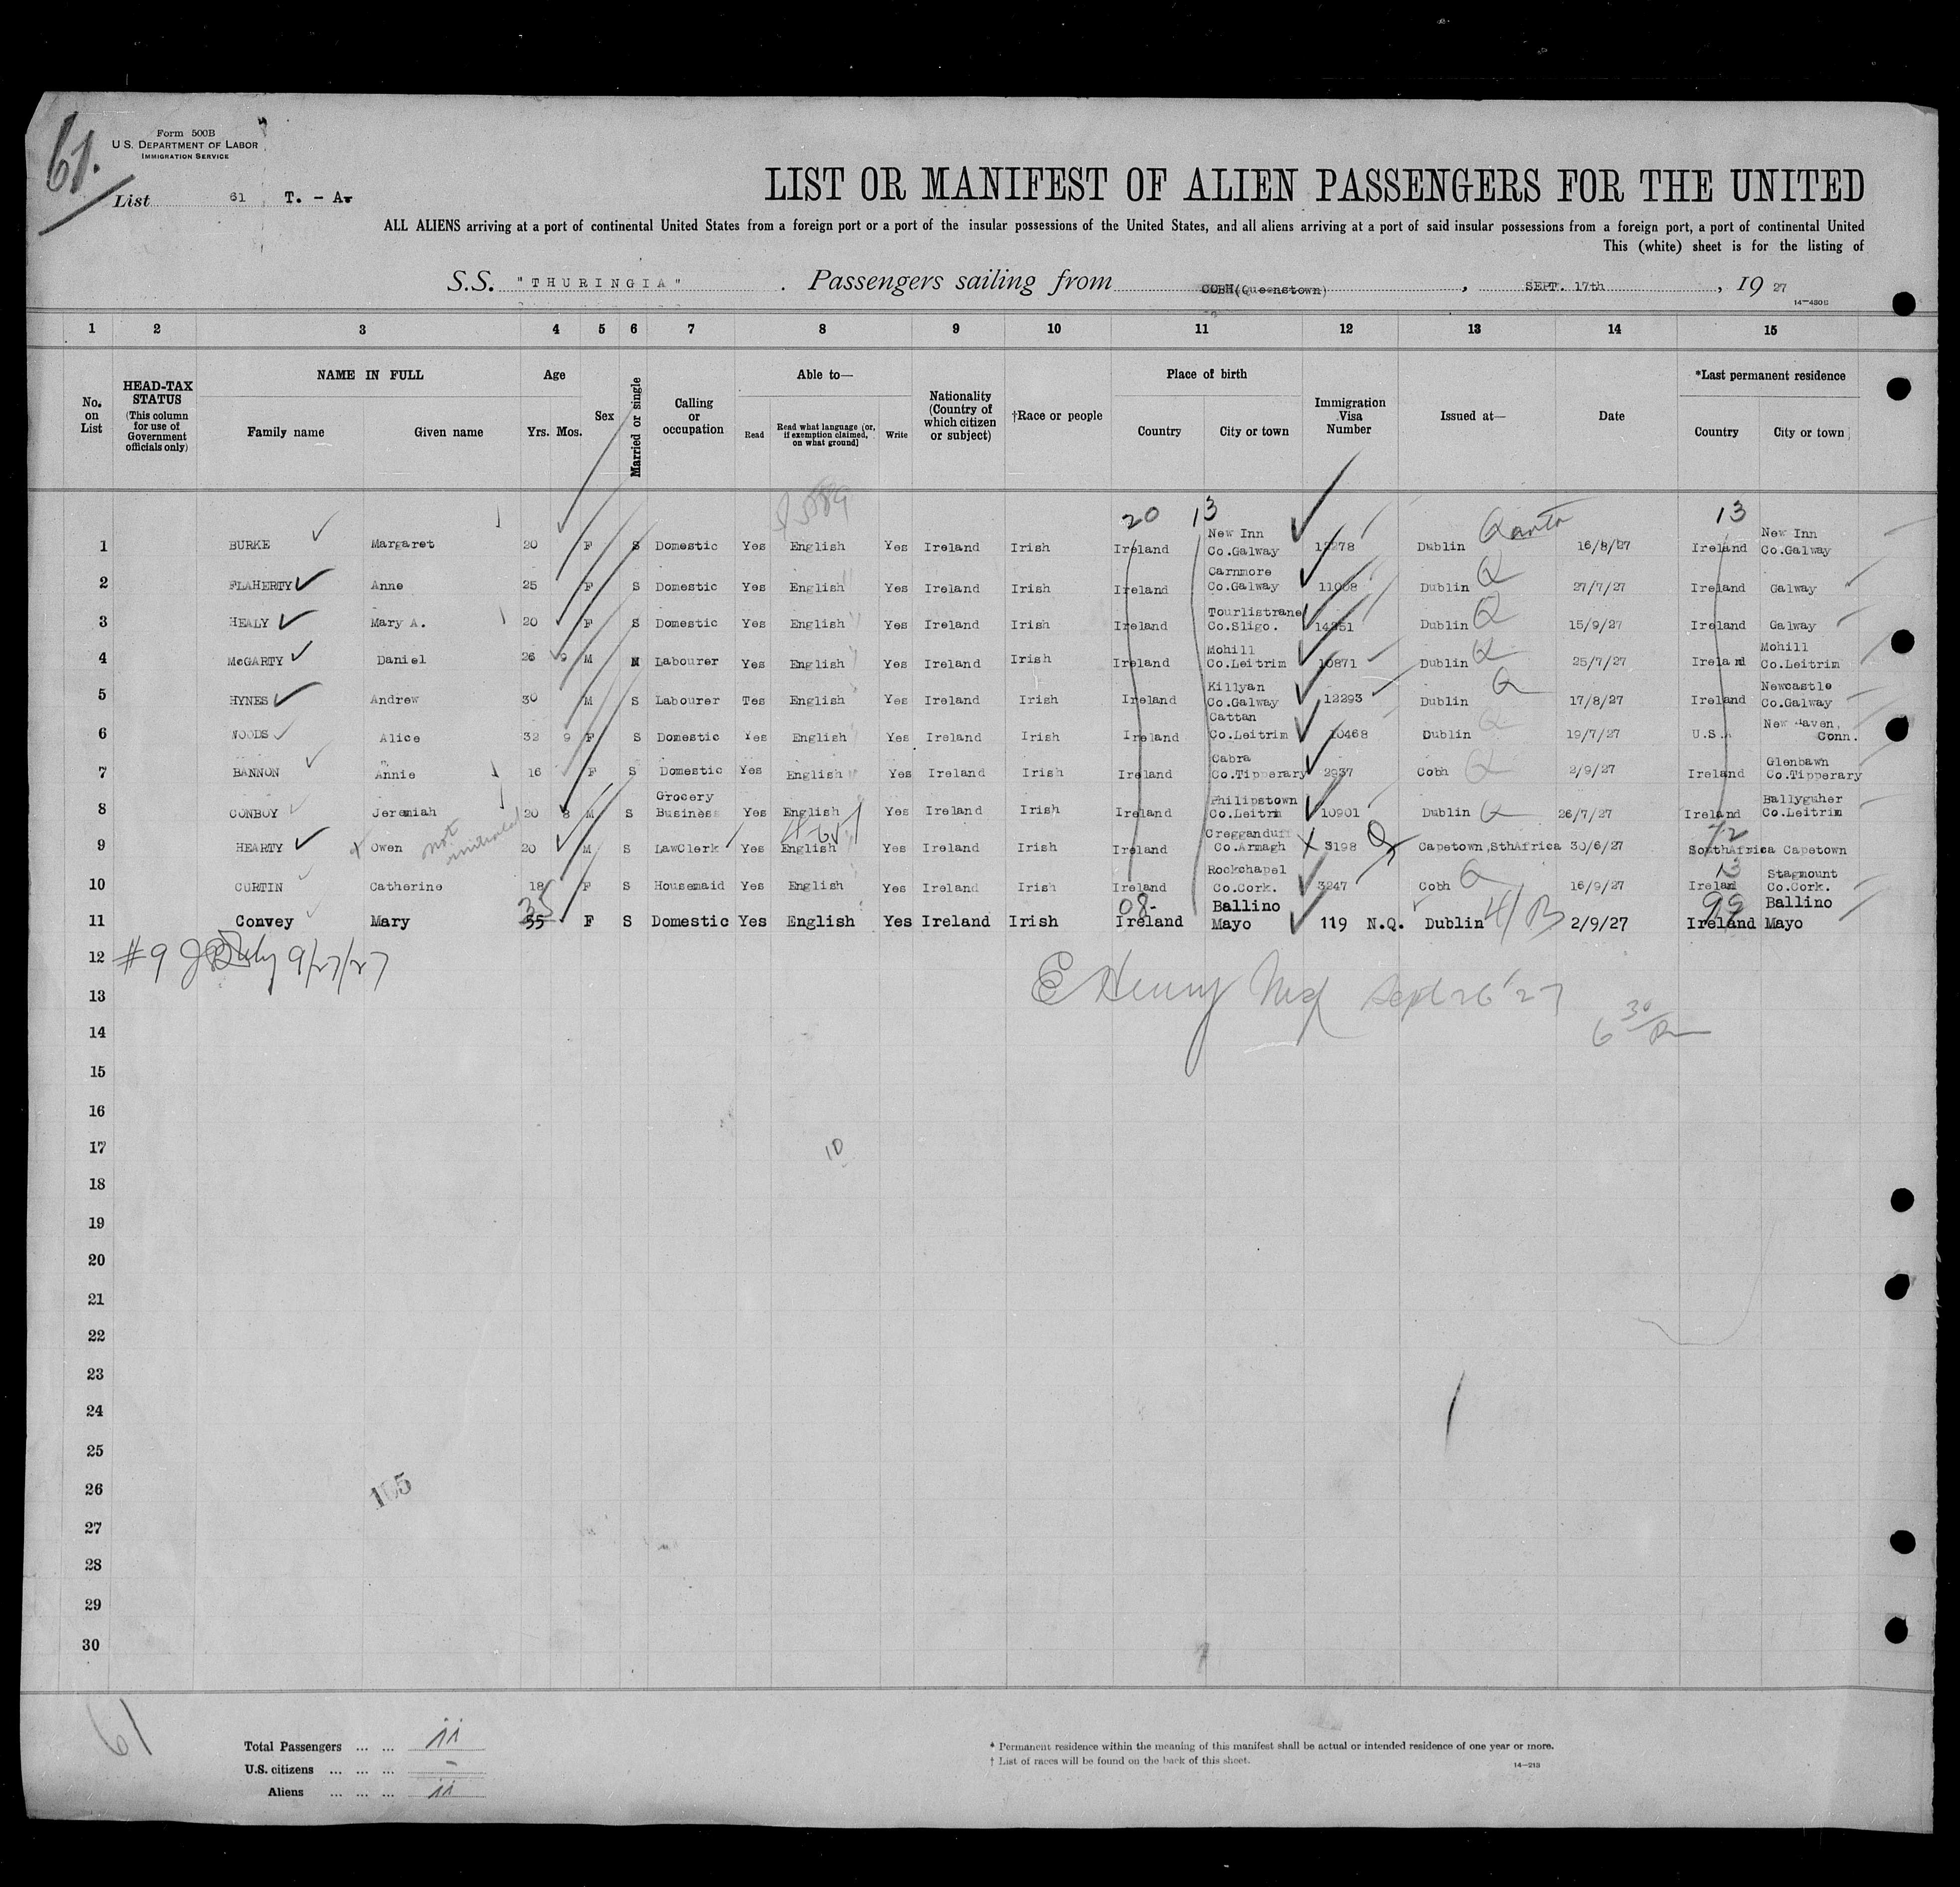 61.
Form 500B
U.S. DEPARTMENT OF LABOR
IMMIGRATION SERVICE
List 61 T. - A
LIST OR MANIFEST OF ALIEN PASSENGERS FOR THE UNITED
ALL ALIENS arriving at a port of continental United States from a foreign port or a port of the insular possessions of the United States, and all aliens arriving at a port of said insular possessions from a foreign port, a port of continental United
This (white) sheet is for the listing of
S.S. "THURINGIA" . Passengers sailing from COBH(Queenstown) , SEPT. 17th , 19 27
14-430B
1 2 3 4 5 6 7 8 9 10 11 12 13 14 15
No. on List
HEAD-TAX STATUS (This column for use of Government officials only)
NAME IN FULL
Family name Given name
Age
Yrs. Mos.
Sex
Married or single
Calling or occupation
Able to—
Read
Read what language [or, if exemption claimed, on what ground]
Write
Nationality (Country of which citizen or subject)
†Race or people
Place of birth
Country City or town
Immigration Visa Number
Issued at—
Date
*Last permanent residence
Country City or town
20 13 13
1 BURKE Margaret 20 F S Domestic Yes English Yes Ireland Irish Ireland New Inn Co.Galway 12278 Dublin 16/8/27 Ireland New Inn Co.Galway
2 FLAHERTY Anne 25 F S Domestic Yes English Yes Ireland Irish Ireland Carnmore Co.Galway 11008 Dublin Q 27/7/27 Ireland Galway
3 HEALY Mary A. 20 F S Domestic Yes English Yes Ireland Irish Ireland Tourlistrane Co.Sligo. 14351 Dublin Q 15/9/27 Ireland Galway
4 McGARTY Daniel 26 9 M Labourer Yes English Yes Ireland Irish Ireland Mohill Co.Leitrim 10871 Dublin Q 25/7/27 Ireland Mohill Co.Leitrim
5 HYNES Andrew 30 M S Labourer Tes English Yes Ireland Irish Ireland Killyan Co.Galway 12293 Dublin Q 17/8/27 Ireland Newcastle Co.Galway
6 WOODS Alice 32 9 F S Domestic Yes English Yes Ireland Irish Ireland Cattan Co.Leitrim 10468 Dublin Q 19/7/27 U.S.A New Haven, Conn.
7 BANNON Annie 16 F S Domestic Yes English Yes Ireland Irish Ireland Cabra Co.Tipperary 2937 Cobh Q 2/9/27 Ireland Glenbawn Co.Tipperary
8 CONBOY Jeremiah 20 8 M S Grocery Business Yes English Yes Ireland Irish Ireland Philipstown Co.Leitrm 10901 Dublin Q 26/7/27 Ireland Ballyguher Co.Leitrim
9 HEARTY Owen not 20 M S LawClerk Yes English Yes Ireland Irish Ireland Creggandu Co.Armagh X 3198 Capetown,SthAfrica 30/6/27 72 SouthAfrica Capetown
10 CURTIN Catherine 18 F S Housemaid Yes English Yes Ireland Irish Ireland Rockchapel Co.Cork. 3247 Cobh Q 16/9/27 13 Ireland Stagmount Co.Cork.
11 Convey Mary 35 F S Domestic Yes English Yes Ireland Irish 08- Ireland Ballino Mayo 119 N.Q. Dublin 4/B 2/9/27 99 Ireland Ballino Mayo
12 #9 9/27/27
13 E Henry Sept 26 '27
14 6 30
15
16
17 10
18
19
20
21
22
23
24
25
26 165
27
28
29
30
61
Total Passengers ... ... 11
U.S. citizens ... ... ... –
Aliens ... ... ... 11
* Permanent residence within the meaning of this manifest shall be actual or intended residence of one year or more.
† List of races will be found on the back of this sheet.
14-213